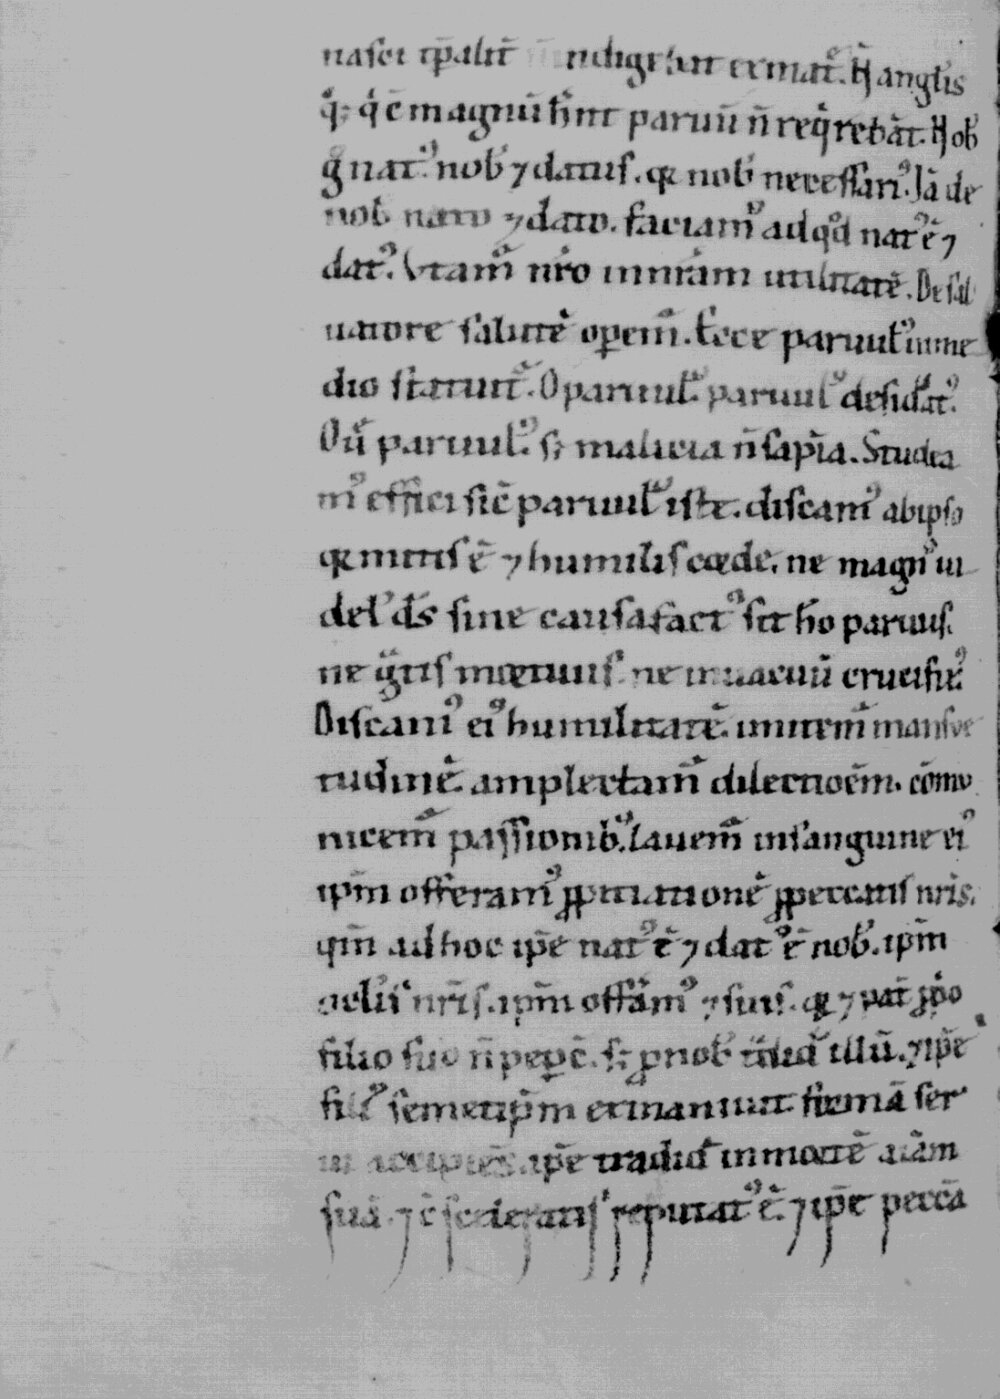 nasci tp̄alit̄ indigebat ex mat̄. H̄ anglis
q̇; q̇ ē magnū h̄nt paruū n̄ reqͥrebāt. H̄ob̾
g̊ natꝰ nob̾ ⁊ datus. qꝛ nob̾ necessariꝰ. Jā de
nob̾ nato ⁊ dato. faciamꝰ ad qd̾ natꝰ ē ⁊
datꝰ. Vtam̃ nr̄o in nr̄am utilitatē. De sal
uatore salutē oꝑem̃. Ecce paruulꝰ in me
dio statuit̃. O paruulꝰ paruul̾ desid̾atꝰ.
O ū paruulꝰ. sꝫ malicia n̄ sapīa. Studea
mꝰ effici sic̄ paruulꝰ iste. discamꝰ ab ipso
qꝛ mitis ē ⁊ humilis corde. ne magnꝰ ui
del̾ d̄s sine causa factꝰ sit h̄o paruus.
ne gͣtis mortuus. ne in uacuū crucifixꝰ.
Discamꝰ eiꝰ humilitatē. imitem̃ mansue
tudinē. amplectam̃ dilectioēm. cōmu
nicem̃ passionib̾. lauem̃ in sanguine eiꝰ
ip̄m offeramꝰ ꝓpitiationē ꝓ peccatis nr̄is.
qm̄ ad hoc ip̄e natꝰ ē ⁊ datꝰ ē nob̾. ip̄m
oclis̾ nr̄is. ip̄m offam̾ꝰ ⁊ suis. qꝛ ⁊ pat̄ ꝓpo
filio suo n̄ peꝑc̄. sꝫ ꝓ nob̾ t̾did̾ illū. ⁊ ip̄e
filiꝰ semetip̄m exinaniuit formā ser
ui accipiēs. ip̄e tradid̾ in mortē aīam
suā. ⁊ c̄ sceleratis reputatꝰ ē. ⁊ ip̄e peccā